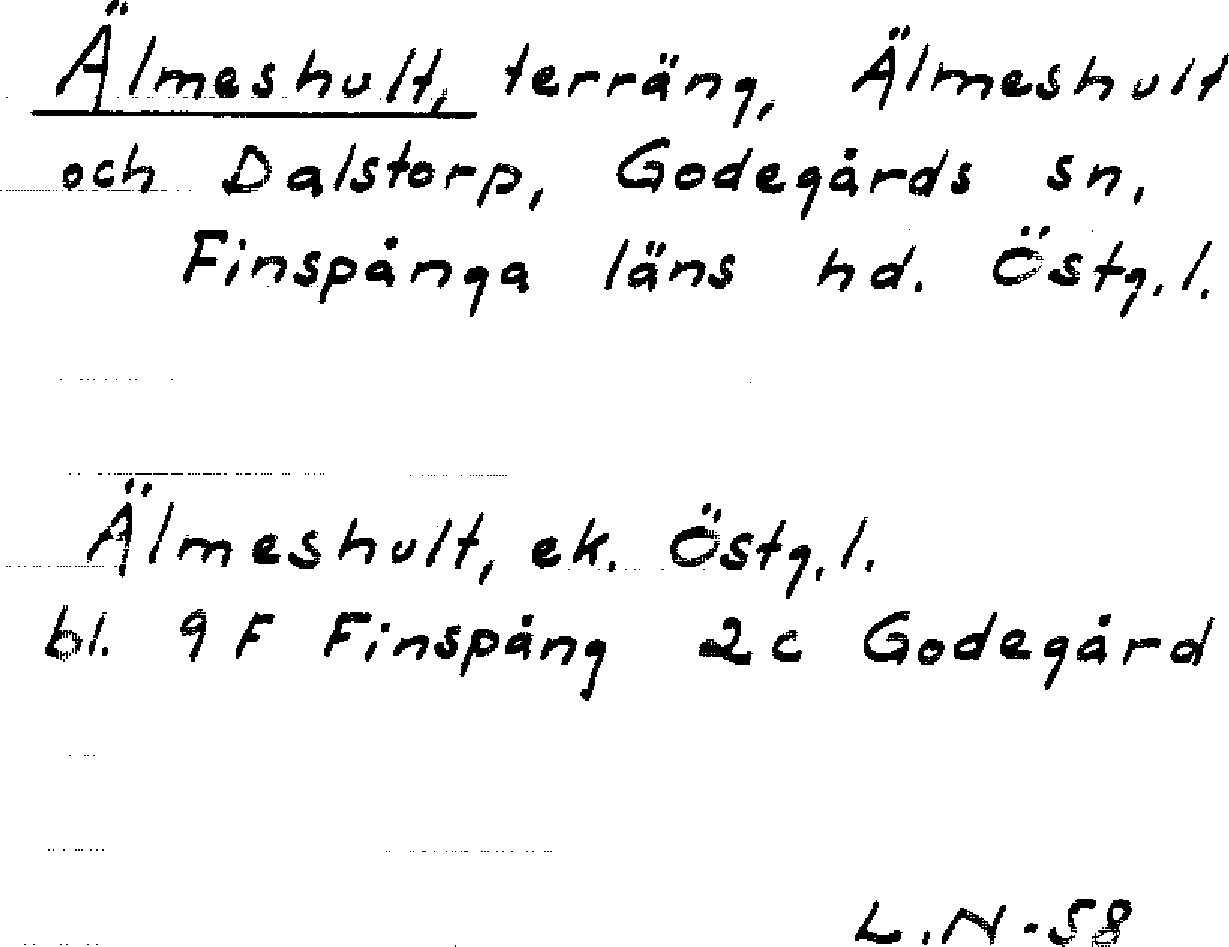 Älmeshult, terräng, Älmeshult
och Dalstorp, Godegårds sn,
Finspånga läns hd. Östg. l.
Älmeshult, ek. Östg. l.
bl. 9 F Finspång 2c Godegård
L.N-58